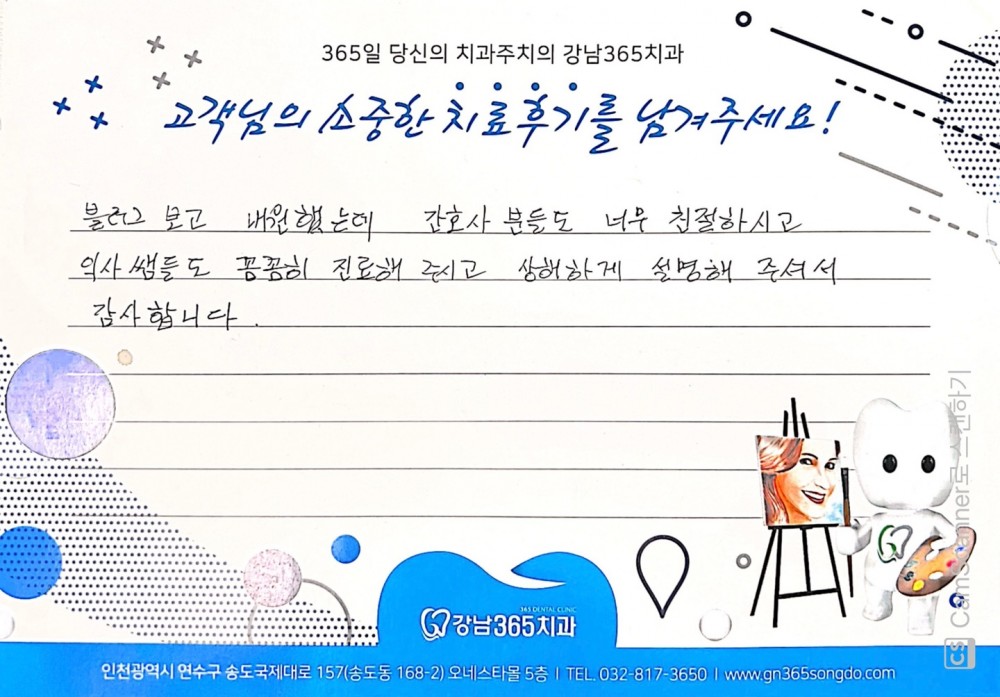 365일 당신의 치과주치의 강남365치과
고객님의 소중한 치료후기를 남겨주세요!
블러그 보고 내원했는데 간호사 분들도 너무 친절하시고
의사 쌤들도 꼼꼼히 진료해 주시고 상해하게 설명해 주셔서
감사합니다.
365 DENTAL CLINIC
강남365치과
인천광역시 연수구 송도국제대로 157(송도동 168-2) 오네스타몰 5층 | TEL. 032-817-3650 | www.gn365songdo.com
CS CamScanner로 스캔하기